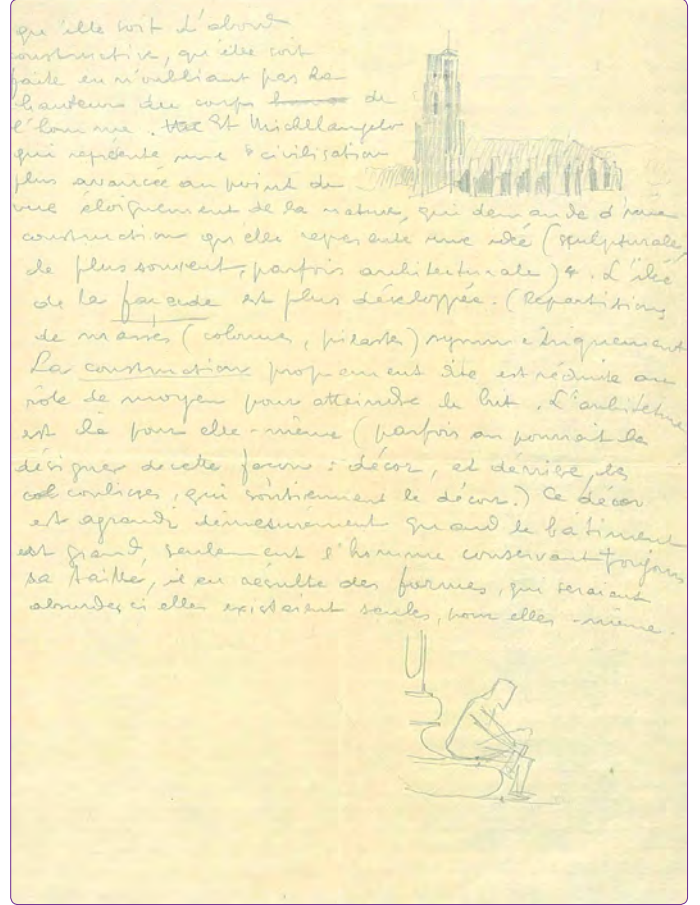 qu'elle soit d'abord
constructive, qu'elle soit
faite en n'oubliant pas la
hauteur du corps de
l'homme. Et Michelangelo
qui représente une "civilisation
plus avancée au point de
vue éloignement de la nature, qui demande d'une
construction qu'elle représente une idée (sculpturale,
le plus souvent, parfois architecturale)". L'idée
de la façade est plus développée. (Répartitions
de masses (colonnes, pilastes) symmetriquement
La construction proprement dite est réduite au
rôle de moyen pour atteindre le but. L'architecture
est là pour elle-même (parfois on pourrait la
désigner de cette façon : décor, et derrière, les
coulisses, qui soutiennent le décor.) Ce décor
est agrandi démesurément quand le bâtiment
est grand, seulement l'homme conservant toujours
sa taille, il en résulte des formes, qui seraient
absurdes si elles existaient seules, pour elles-même.